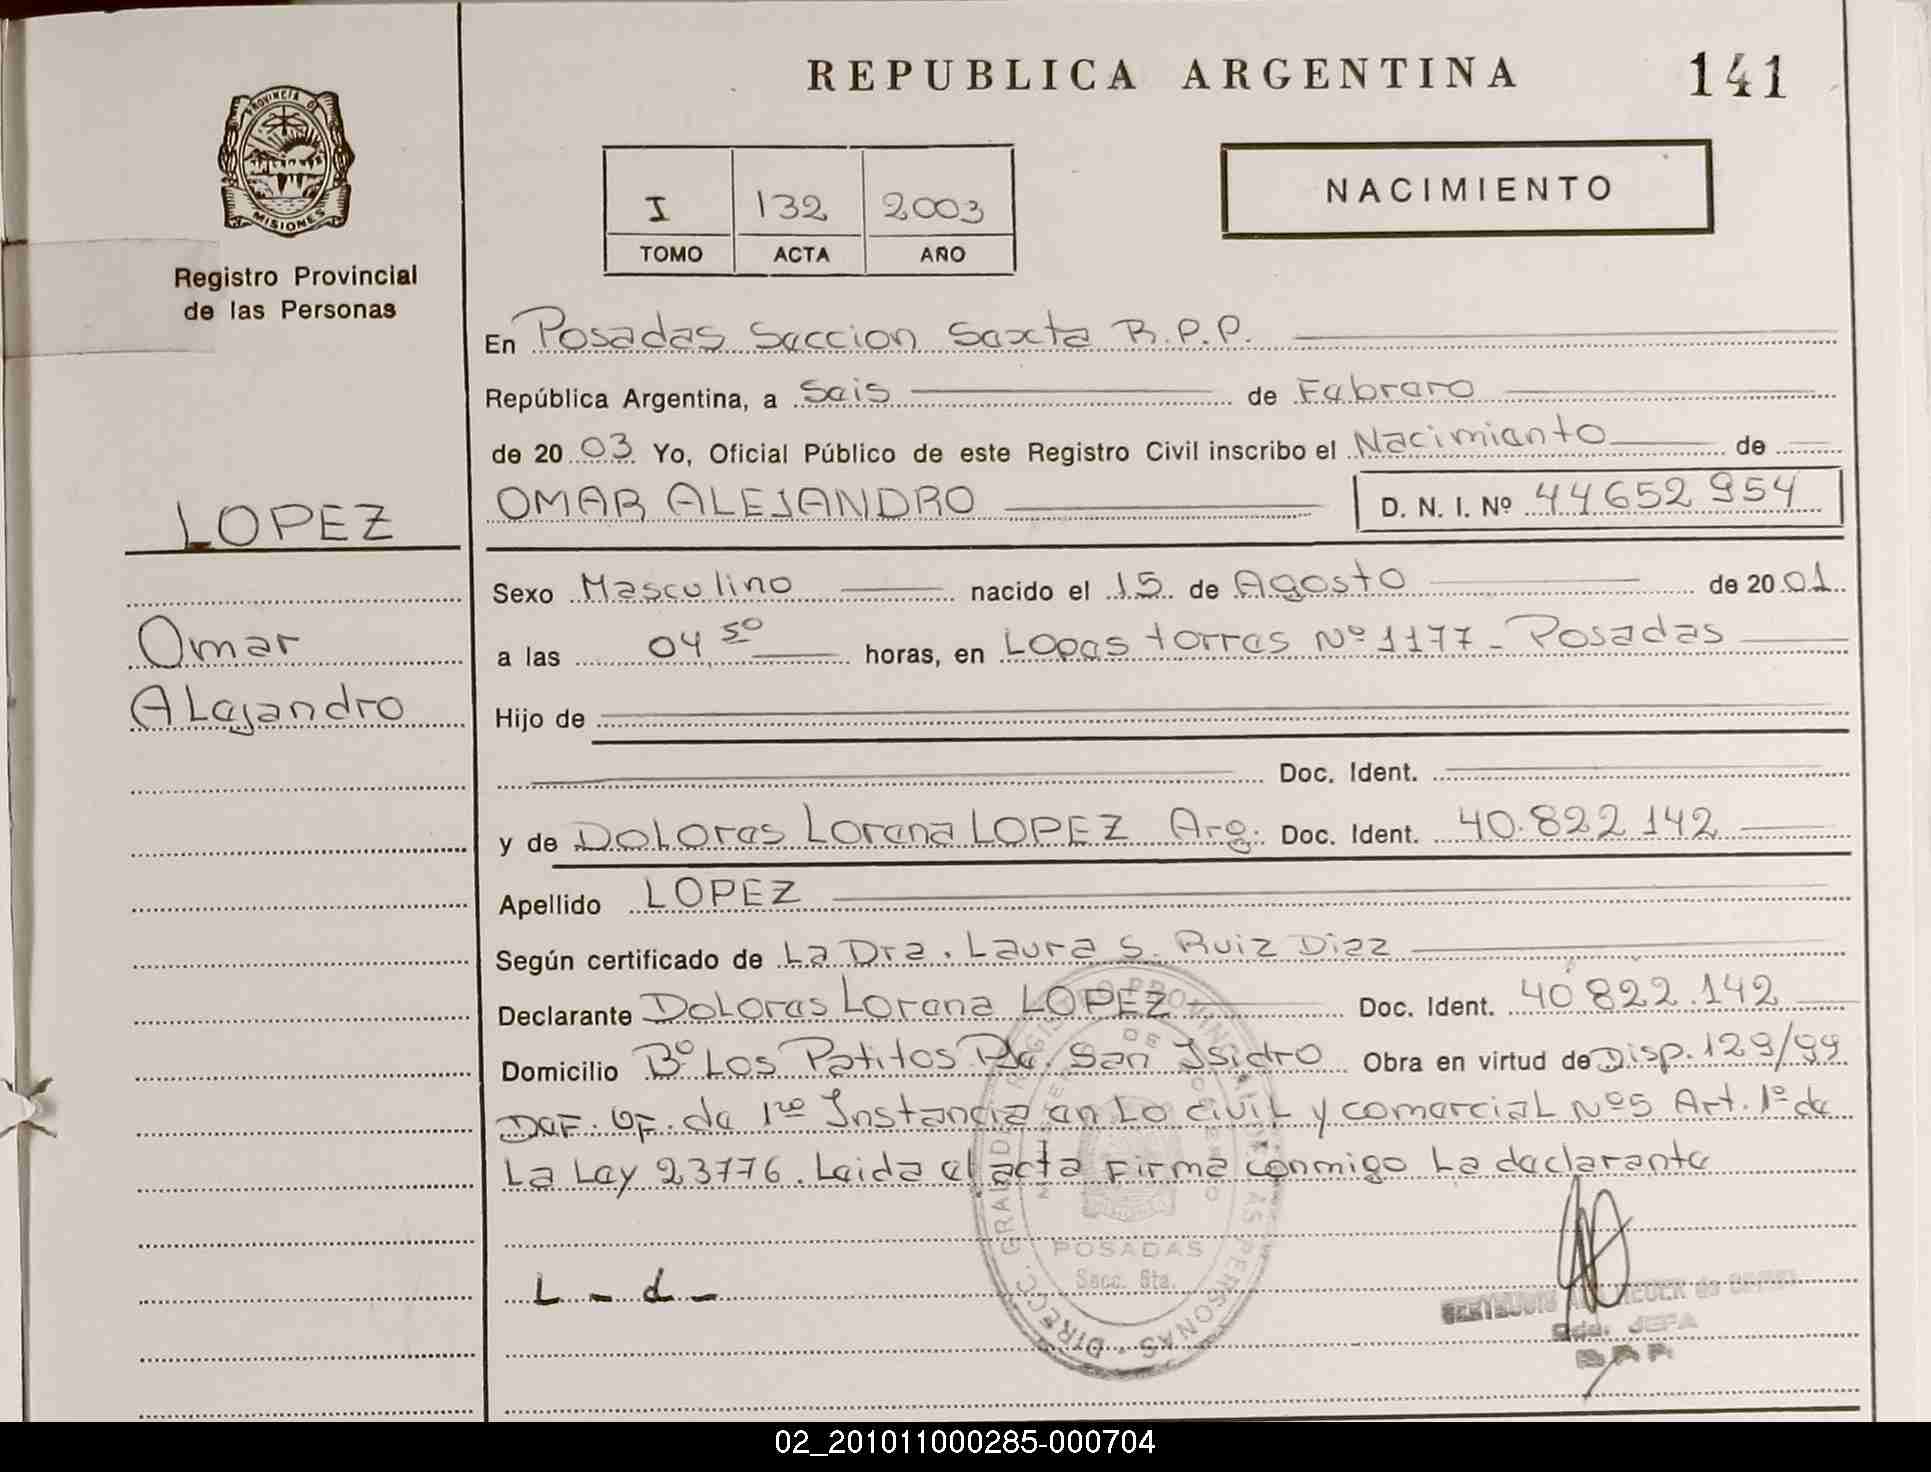 REPUBLICA ARGENTINA
141
PROVINCIA DE
MISIONES
Registro Provincial
de las Personas
I 132 2003
TOMO ACTA AÑO
NACIMIENTO
En Posadas Seccion Sexta R.P.P.
República Argentina, a Seis de Febrero
de 2003 Yo, Oficial Público de este Registro Civil inscribo el Nacimiento de
OMAR ALEJANDRO D. N. I. Nº 44652954
LOPEZ
Omar
Alejandro
Sexo Masculino nacido el 15 de Agosto de 2001
a las 04 50 horas, en Lopes torres Nº 1177 - Posadas
Hijo de
Doc. Ident.
y de Dolores Lorena LOPEZ Arg. Doc. Ident. 40.822.142
Apellido LOPEZ
Según certificado de La Dra. Laura S. Ruiz Diaz
Declarante Dolores Lorena LOPEZ Doc. Ident. 40822.142
Domicilio Bº Los Patitos San Isidro Obra en virtud de Disp. 129/99
Def. Of. de 1ra Instancia en Lo civil y comercial Nº5 Art. 1º de
La Ley 23776. Leida el acta Firma conmigo La declarante
L - d -
POSADAS
Secc. 6ta.
JEFA
R.P.P.
02_201011000285-000704